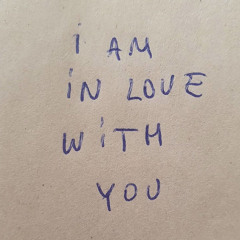 i AM
iN LOVE
WiTH
YOU